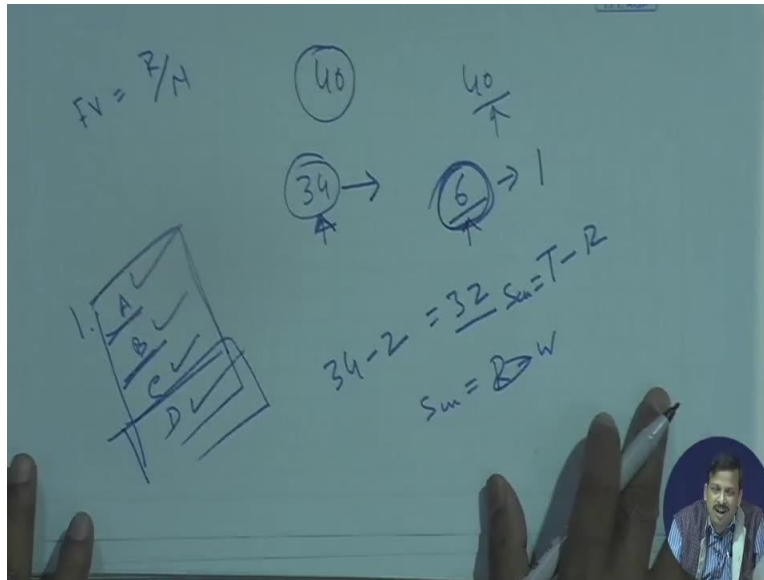 FV = R/N
40
40
34 →
6 → 1
1.
A ✓
B ✓
C ✓
D ✓
34 - 2 = 32
Scu = T - R
Scu = R - W